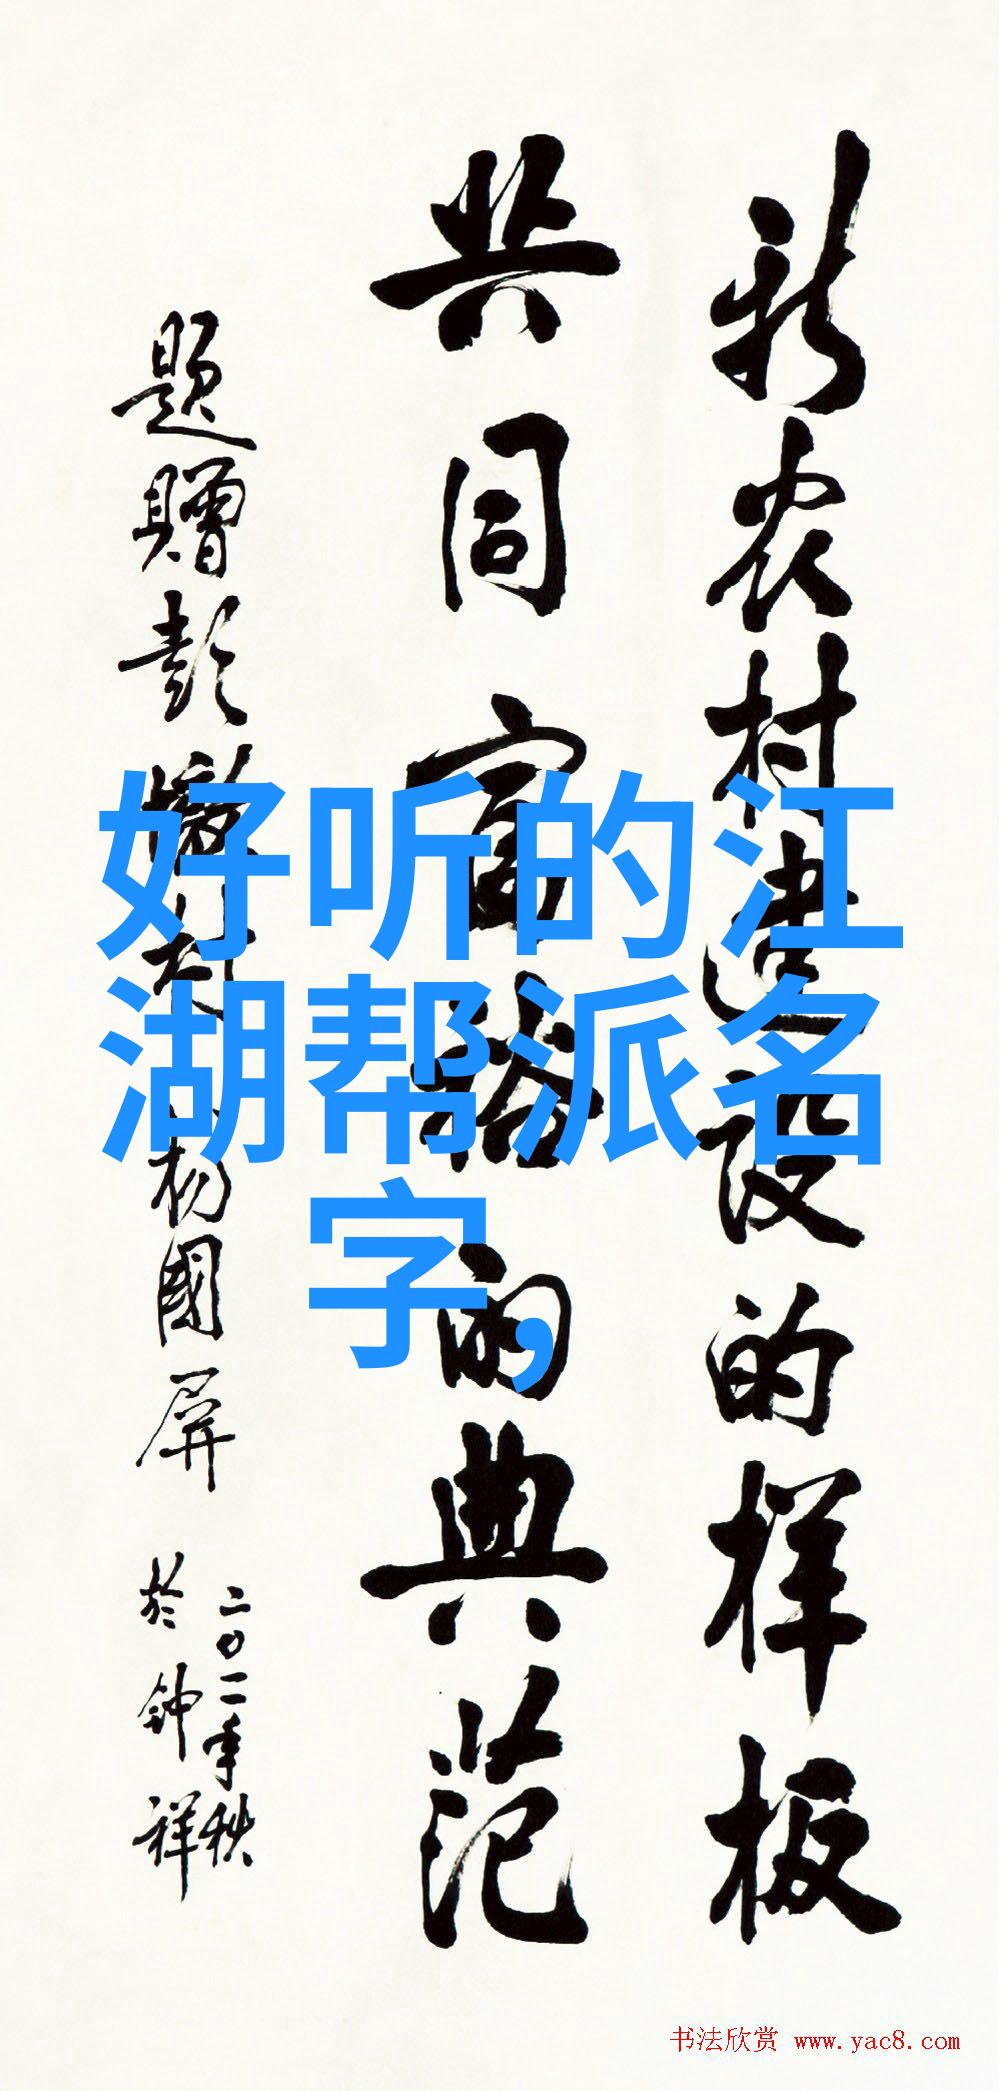 新农村建设的样板
共同富裕的典范
题赠彭墩村
杨国屏
二〇一一年秋
於钟祥
好听的江
湖帮派名
字,
书法欣赏 www.yac8.com